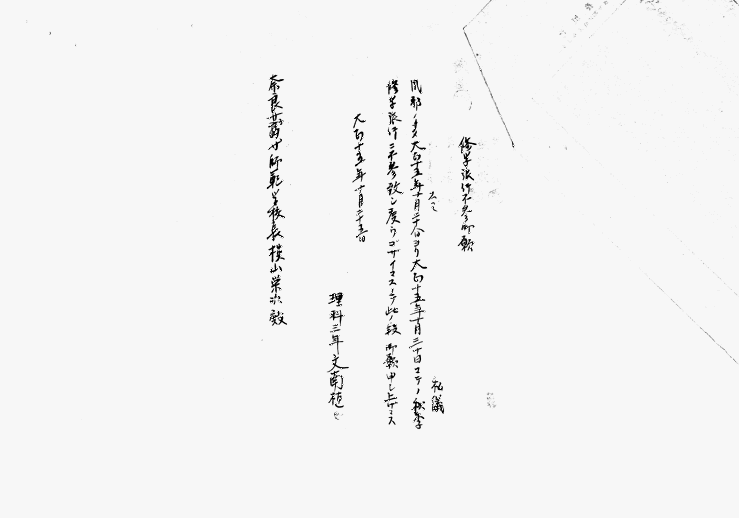 修学旅行不参御願
私儀
風邪ノタメ大正十五年十月二十八日ヨリ大正十五年十月三十日マデノ秋季
修学旅行ニ不参致シ度うゴザイマスニテ此ノ段御願申シ上ゲマス
大正十五年十月二十五日
理科三年文南植
奈良女高師範学校長槇山栄次殿